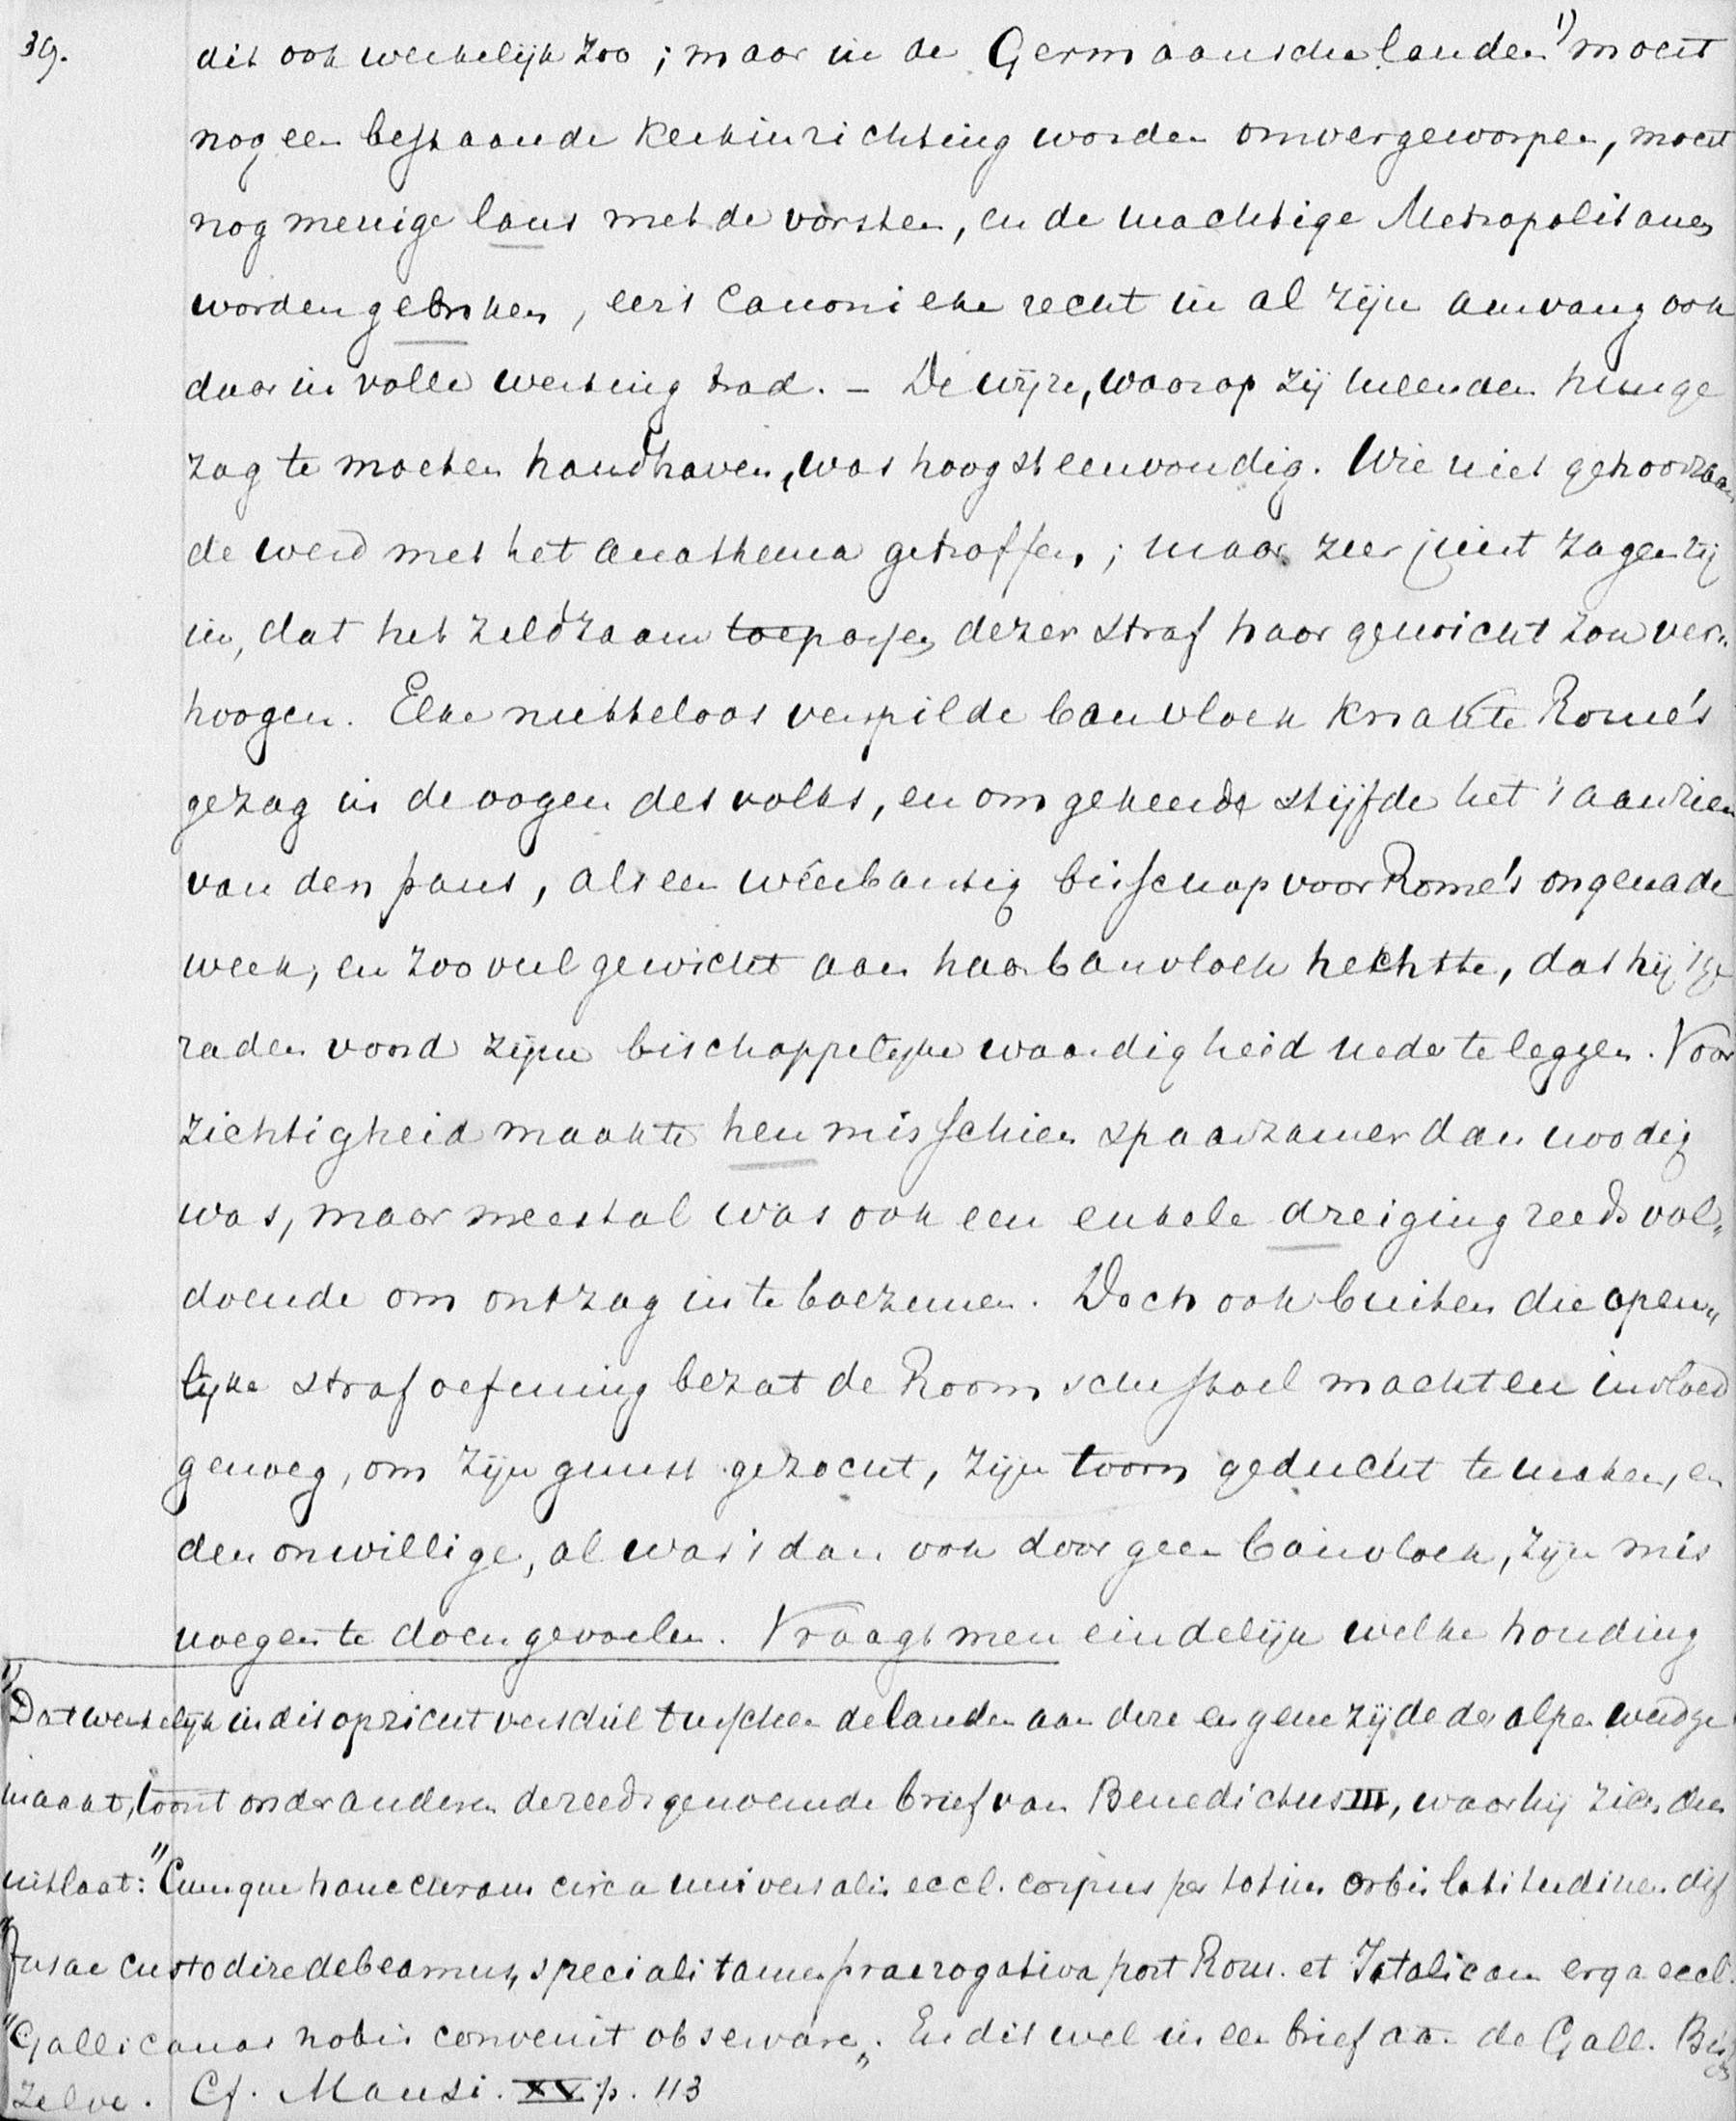 39.
dit ook werkelijk zoo; maar in de Germaansche landen 1) moest
nog een bestaande kerkinrichting worden omvergeworpen, moest
nog menige lans met de vorsten, en de machtige Metropolitanen
worden gebroken, eer 't Canonieke recht in al zijn omvang ook
daar in volle werking trad. – De wijze, waarop zij meenden hun ge
zag te moeten handhaven, was hoogst eenvoudig. Wie niet gehoorzaam
de werd met het anathema getroffen; maar zeer juist zagen zij
in, dat het zeldzaam toepassen dezer straf haar gewicht zou ver„
hoogen. Elke nutteloos verspilde banvloek knakte Rome's
gezag in de oogen des volks, en omgekeerd stijfde het 't aanzien
van den paus, als een wéerbarstig bisschop voor Rome's ongenade
week, en zoo veel gewicht aan haar banvloek hechtte, dat hij 't ge
raden vond zijne bisschoppelijke waardigheid neder te leggen. Voor
zichtigheid maakte hen misschien spaarzamer dan noodig
was, maar meestal was ook een enkele dreiging reeds vol„
doende om ontzag in te boezemen. Doch ook buiten die open„
lijke strafoefening bezat de Roomsche stoel macht en invloed
genoeg, om zijn gunst gezocht, zijn toorn geducht te maken, en
den onwillige, al was 't dan ook door geen banvloek, zijn mis
noegen te doen gevoelen. Vraagt men eindelijk welke houding
1) Dat werkelijk in dit opzicht verschil tusschen de landen aan deze en gene zijde der alpen werd ge
maakt, toont onder anderen de reeds genoemde brief van Benedictus III, waar hij zich dus
uitlaat: "Cumque hanc curam circa universalis eccl. corpus per totius orbis latitudinem dif
"fusae custodire debeamus, speciali tamen praerogativa post Rom. et Italicam erga eccl.
"Gallicanas nobis convenit observare„. En dit wel in een brief aan de Gall. Biss
zelve. Cf. Mansi. XV p. 113